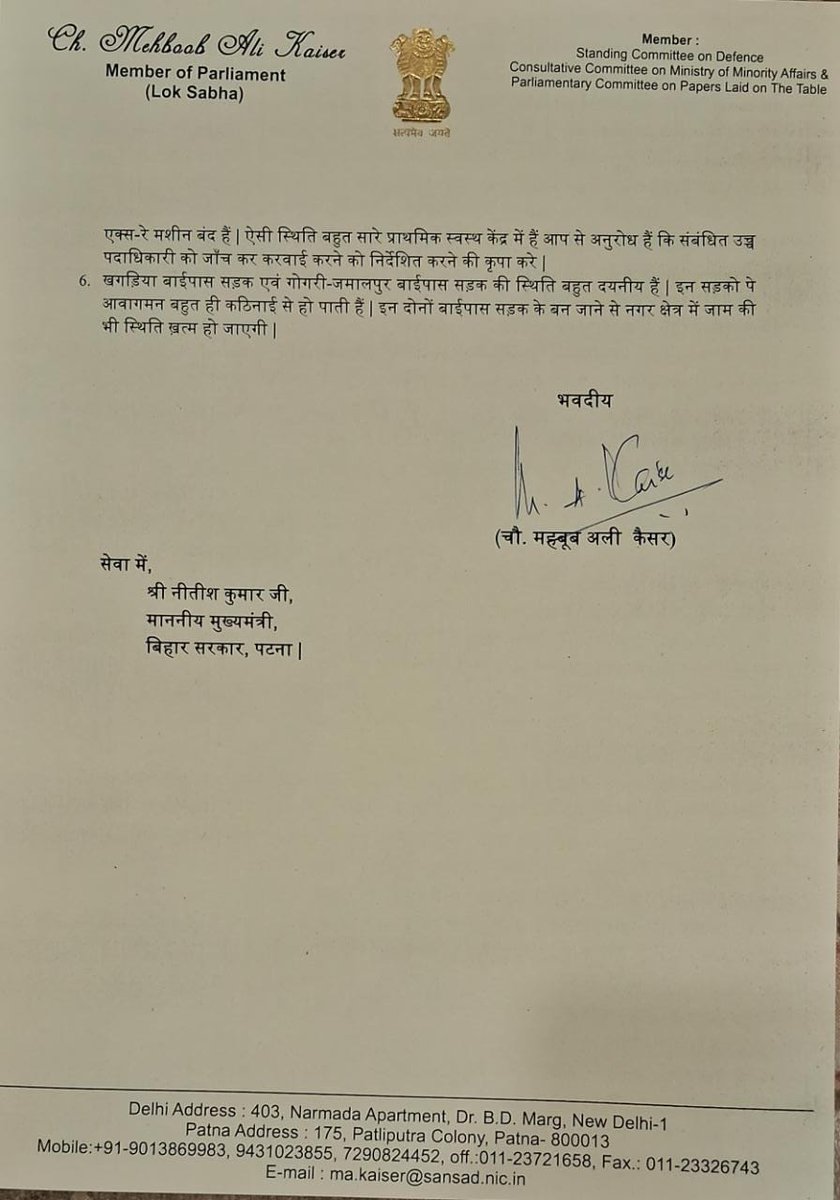 Ch. Mehboob Ali Kaiser
Member of Parliament
(Lok Sabha)
सत्यमेव जयते
Member :
Standing Committee on Defence
Consultative Committee on Ministry of Minority Affairs &
Parliamentary Committee on Papers Laid on The Table
एक्स-रे मशीन बंद हैं | ऐसी स्थिति बहुत सारे प्राथमिक स्वस्थ केंद्र में हैं आप से अनुरोध हैं कि संबंधित उच्च
पदाधिकारी को जाँच कर करवाई करने को निर्देशित करने की कृपा करे |
6. खगड़िया बाईपास सड़क एवं गोगरी-जमालपुर बाईपास सड़क की स्थिति बहुत दयनीय हैं | इन सड़को पे
आवागमन बहुत ही कठिनाई से हो पाती हैं | इन दोनों बाईपास सड़क के बन जाने से नगर क्षेत्र में जाम की
भी स्थिति ख़त्म हो जाएगी |
भवदीय
M. A. Kaiser
(चौ. महबूब अली कैसर)
सेवा में,
श्री नीतीश कुमार जी,
माननीय मुख्यमंत्री,
बिहार सरकार, पटना |
Delhi Address : 403, Narmada Apartment, Dr. B.D. Marg, New Delhi-1
Patna Address : 175, Patliputra Colony, Patna- 800013
Mobile:+91-9013869983, 9431023855, 7290824452, off.:011-23721658, Fax.: 011-23326743
E-mail : ma.kaiser@sansad.nic.in